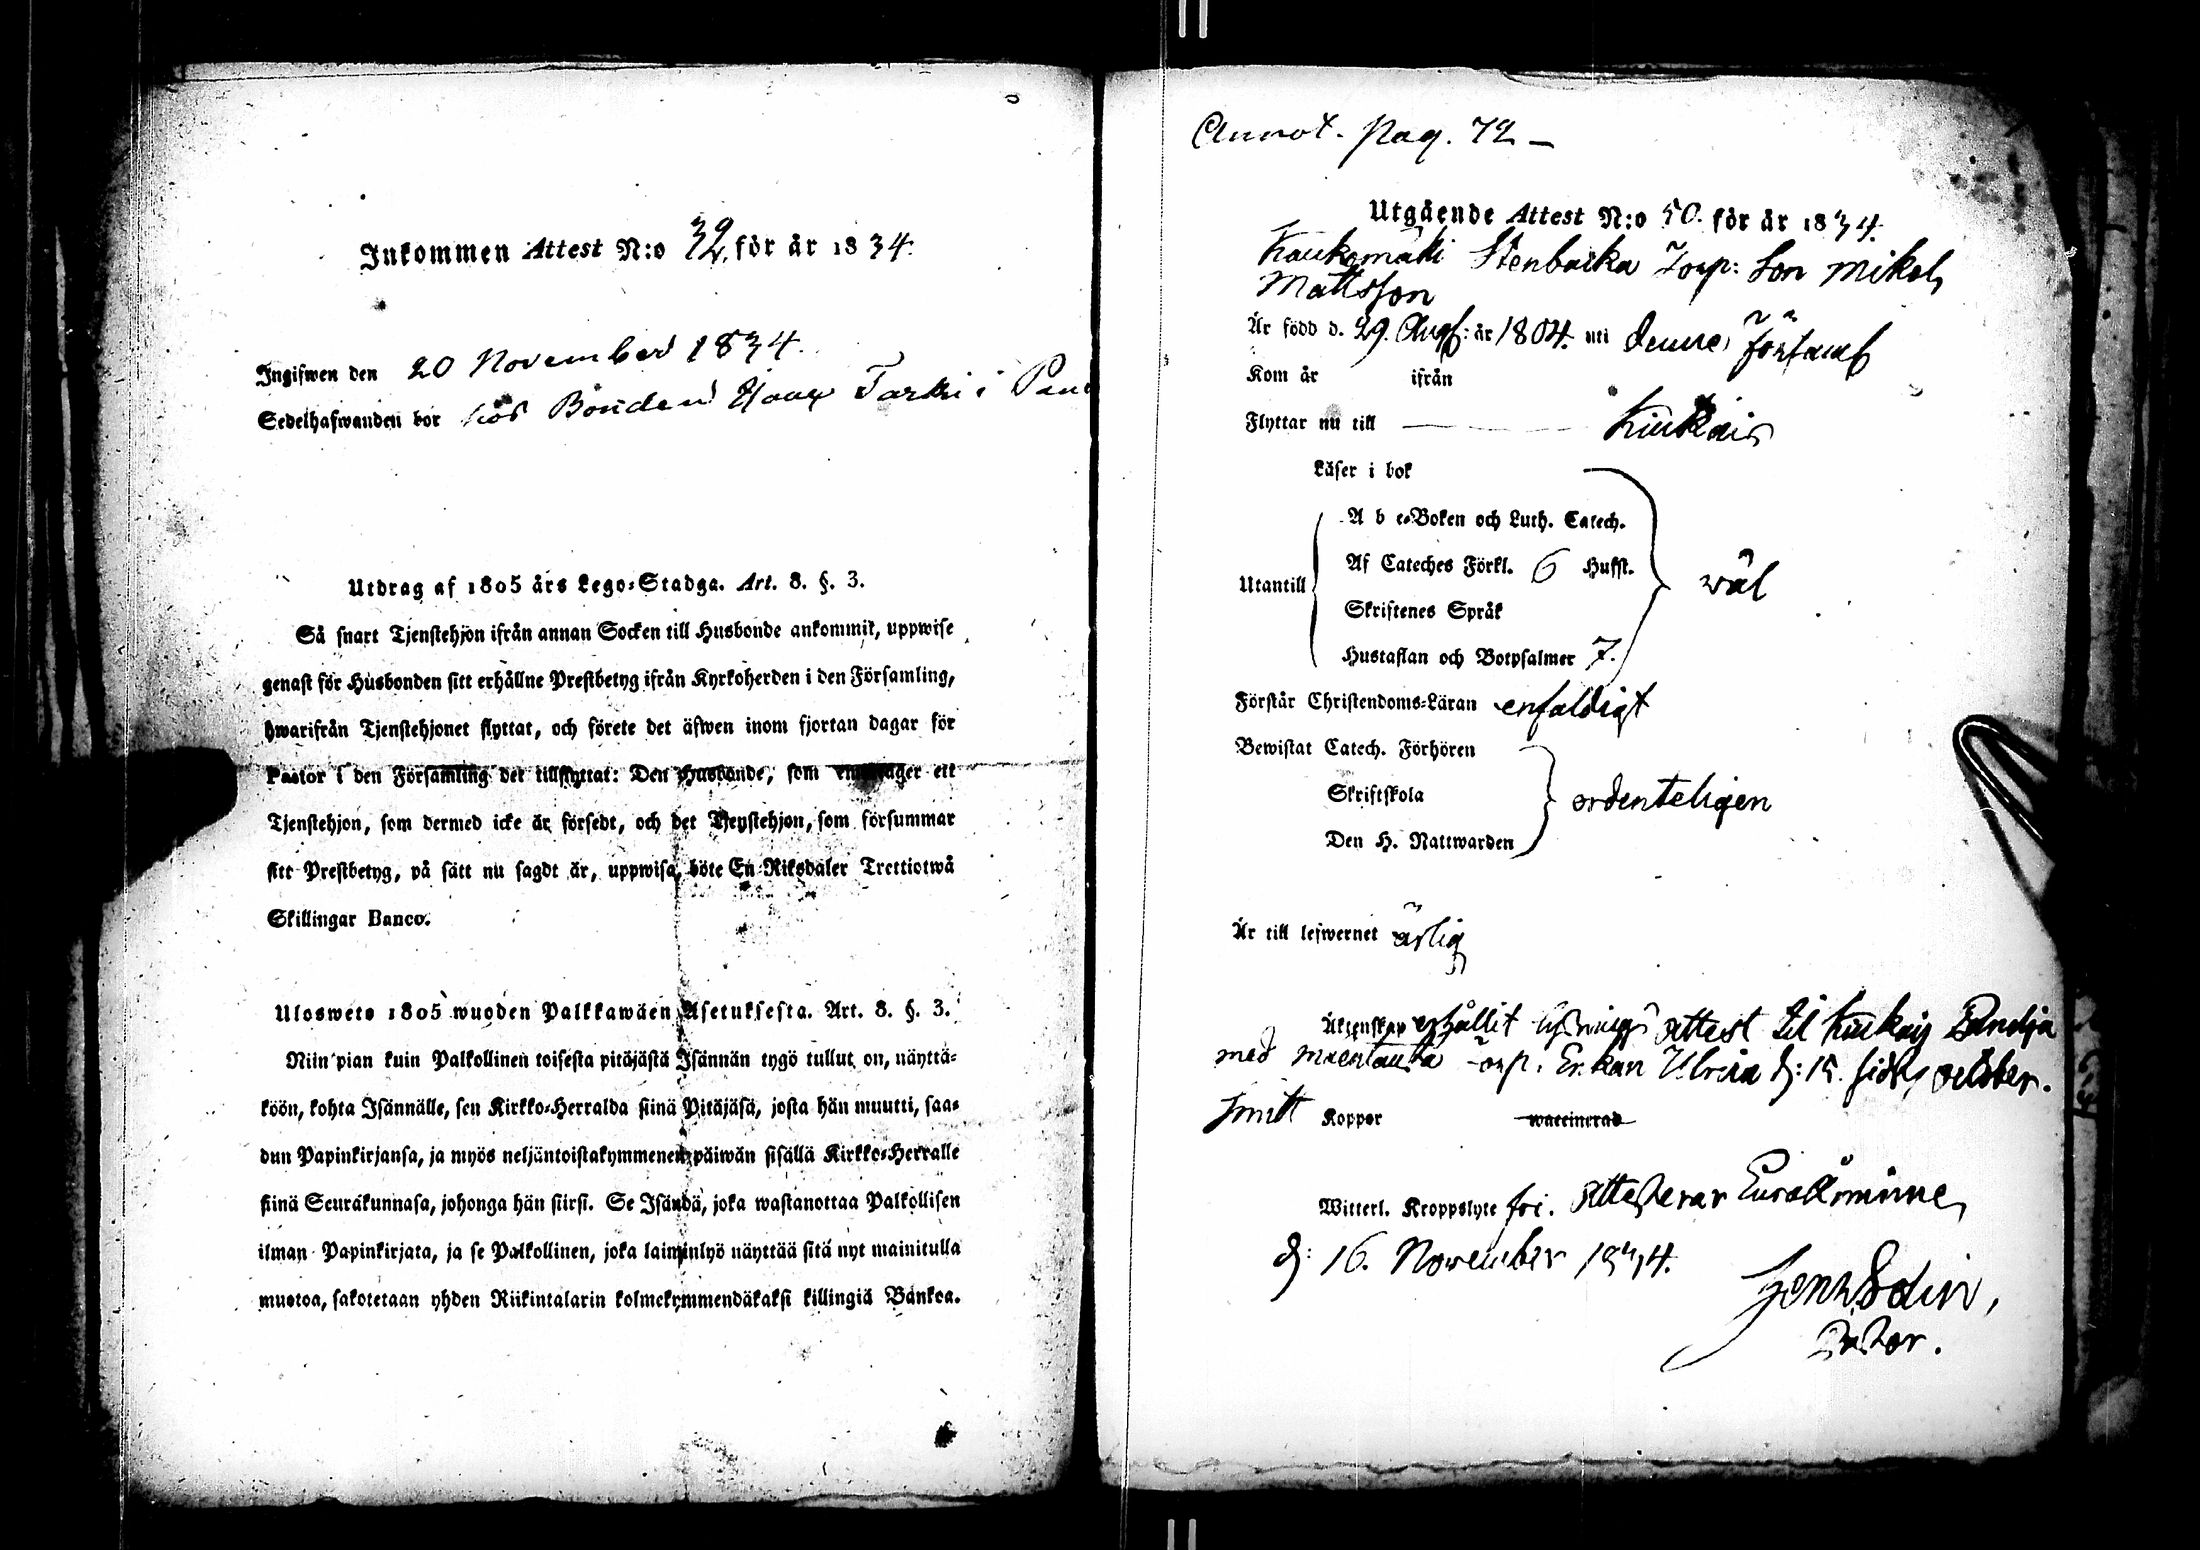 Inkommen Attest N:o 32, för år 1834.
Ingifwen den 20 November 1834.
Sedelhafwanden bor hos Bonden Isaac Tarki i
Utdrag af 1805 års Lego-Stadga. Art. 8. §. 3.
Så snart Tjenstehjon ifrån annan Socken till Husbonde ankommit, uppwise
genast för Husbonden sitt erhållne Prestbetyg ifrån Kyrkoherden i den Församling,
hwarifrån Tjenstehjonet flyttat, och förete det äfwen inom fjortan dagar för
Pastor i den Församling det tillflyttat: Den Husbonde, som emottager ett
Tjenstehjon, som dermed icke är försedt, och det Tjenstehjon, som försummar
sitt Prestbetyg, på sätt nu sagdt är, uppwisa, böte En Riksdaler Trettiotwå
Skillingar Banco.
Ulosweto 1805 wuoden Palkkawäen Asetuksesta. Art. 8. §. 3.
Niin pian kuin Palkollinen toisesta pitäjästä Isännän tygö tullut on, näyttä-
köön, kohta Isännälle, sen Kirkko-Herralda siinä Pitäjäsä, josta hän muutti, saa-
dun Papinkirjansa, ja myös neljäntoistakymmenen päiwän sisällä Kirkko-Herralle
siinä Seurakunnasa, johonga hän siirsi. Se Isändä, joka wastanottaa Palkollisen
ilman Papinkirjata, ja se Palkollinen, joka laiminlyö näyttää sitä nyt mainitulla
muotoa, sakotetaan yhden Riikintalarin kolmekymmendäkaksi killingiä Bankoa.
Annot. Pag. 72 –
Utgående Attest N:o 50. för år 1834.
Kaukomäki Stenbacka Torp: Son Mikel
Mattsson
Är född d. 29. Aug: år 1804. uti denne Förs
Kom år ifrån
Flyttar nu till Kiukais
Läser i bok
A b c-Boken och Luth. Catech.
Af Cateches Förkl. 6 Hufst.
Utantill wäl
Skriftenes Språk
Hustaflan och Botpsalmer 7.
Förstår Christendoms-Läran enfaldigt
Bewistat Catech. Förhören
Skriftskola ordenteligen
Den H. Nattwarden
Är till lefwernet ärlig
Äktenskap erhållit lysnings attest til Kiukais
med torp. Enkan Ulrica d: 15. sidst October.
Smitt Koppor waccinerad
Witterl. Kroppslyte fri. Attesterar Euraåminne
d: 16. November 1834.
Pastor.